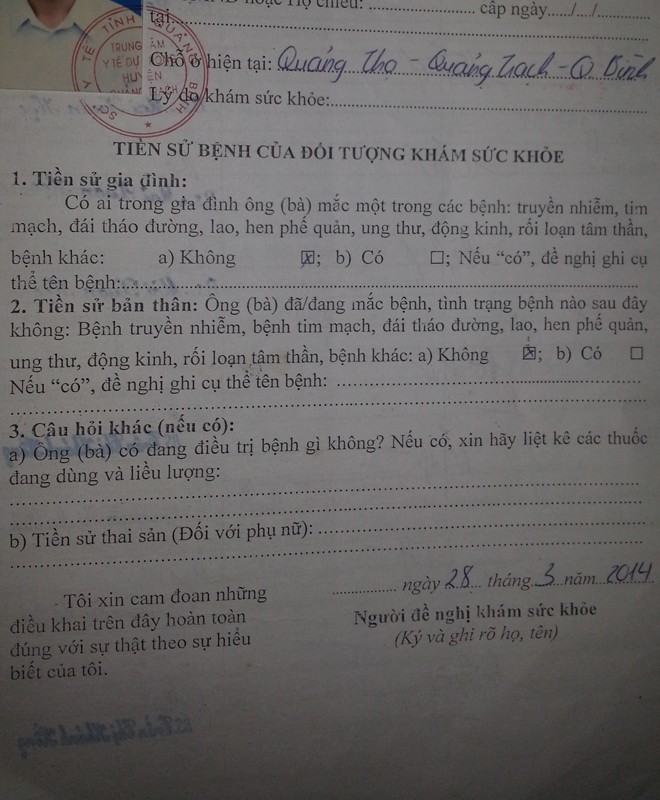 hoặc Hộ chiếu: ........................ cấp ngày...../..../............
tại.
Chỗ ở hiện tại: Quảng Thọ - Quảng Trạch - Q. Bình
Lý do khám sức khỏe:
SỞ Y TẾ TỈNH QUẢNG BÌNH
TRUNG TÂM
Y TẾ DỰ
HUYỆN
QUẢNG TRẠCH
TIỀN SỬ BỆNH CỦA ĐỐI TƯỢNG KHÁM SỨC KHỎE
1. Tiền sử gia đình:
Có ai trong gia đình ông (bà) mắc một trong các bệnh: truyền nhiễm, tim
mạch, đái tháo đường, lao, hen phế quản, ung thư, động kinh, rối loạn tâm thần,
bệnh khác: a) Không ☒; b) Có ☐; Nếu “có”, đề nghị ghi cụ
thể tên bệnh:
2. Tiền sử bản thân: Ông (bà) đã/đang mắc bệnh, tình trạng bệnh nào sau đây
không: Bệnh truyền nhiễm, bệnh tim mạch, đái tháo đường, lao, hen phế quản,
ung thư, động kinh, rối loạn tâm thần, bệnh khác: a) Không ☒; b) Có ☐
Nếu “có”, đề nghị ghi cụ thể tên bệnh:
3. Câu hỏi khác (nếu có):
a) Ông (bà) có đang điều trị bệnh gì không? Nếu có, xin hãy liệt kê các thuốc
đang dùng và liều lượng:
b) Tiền sử thai sản (Đối với phụ nữ):
................ ngày 28 tháng 3 năm 2014
Tôi xin cam đoan những
điều khai trên đây hoàn toàn
đúng với sự thật theo sự hiểu
biết của tôi.
Người đề nghị khám sức khỏe
(Ký và ghi rõ họ, tên)